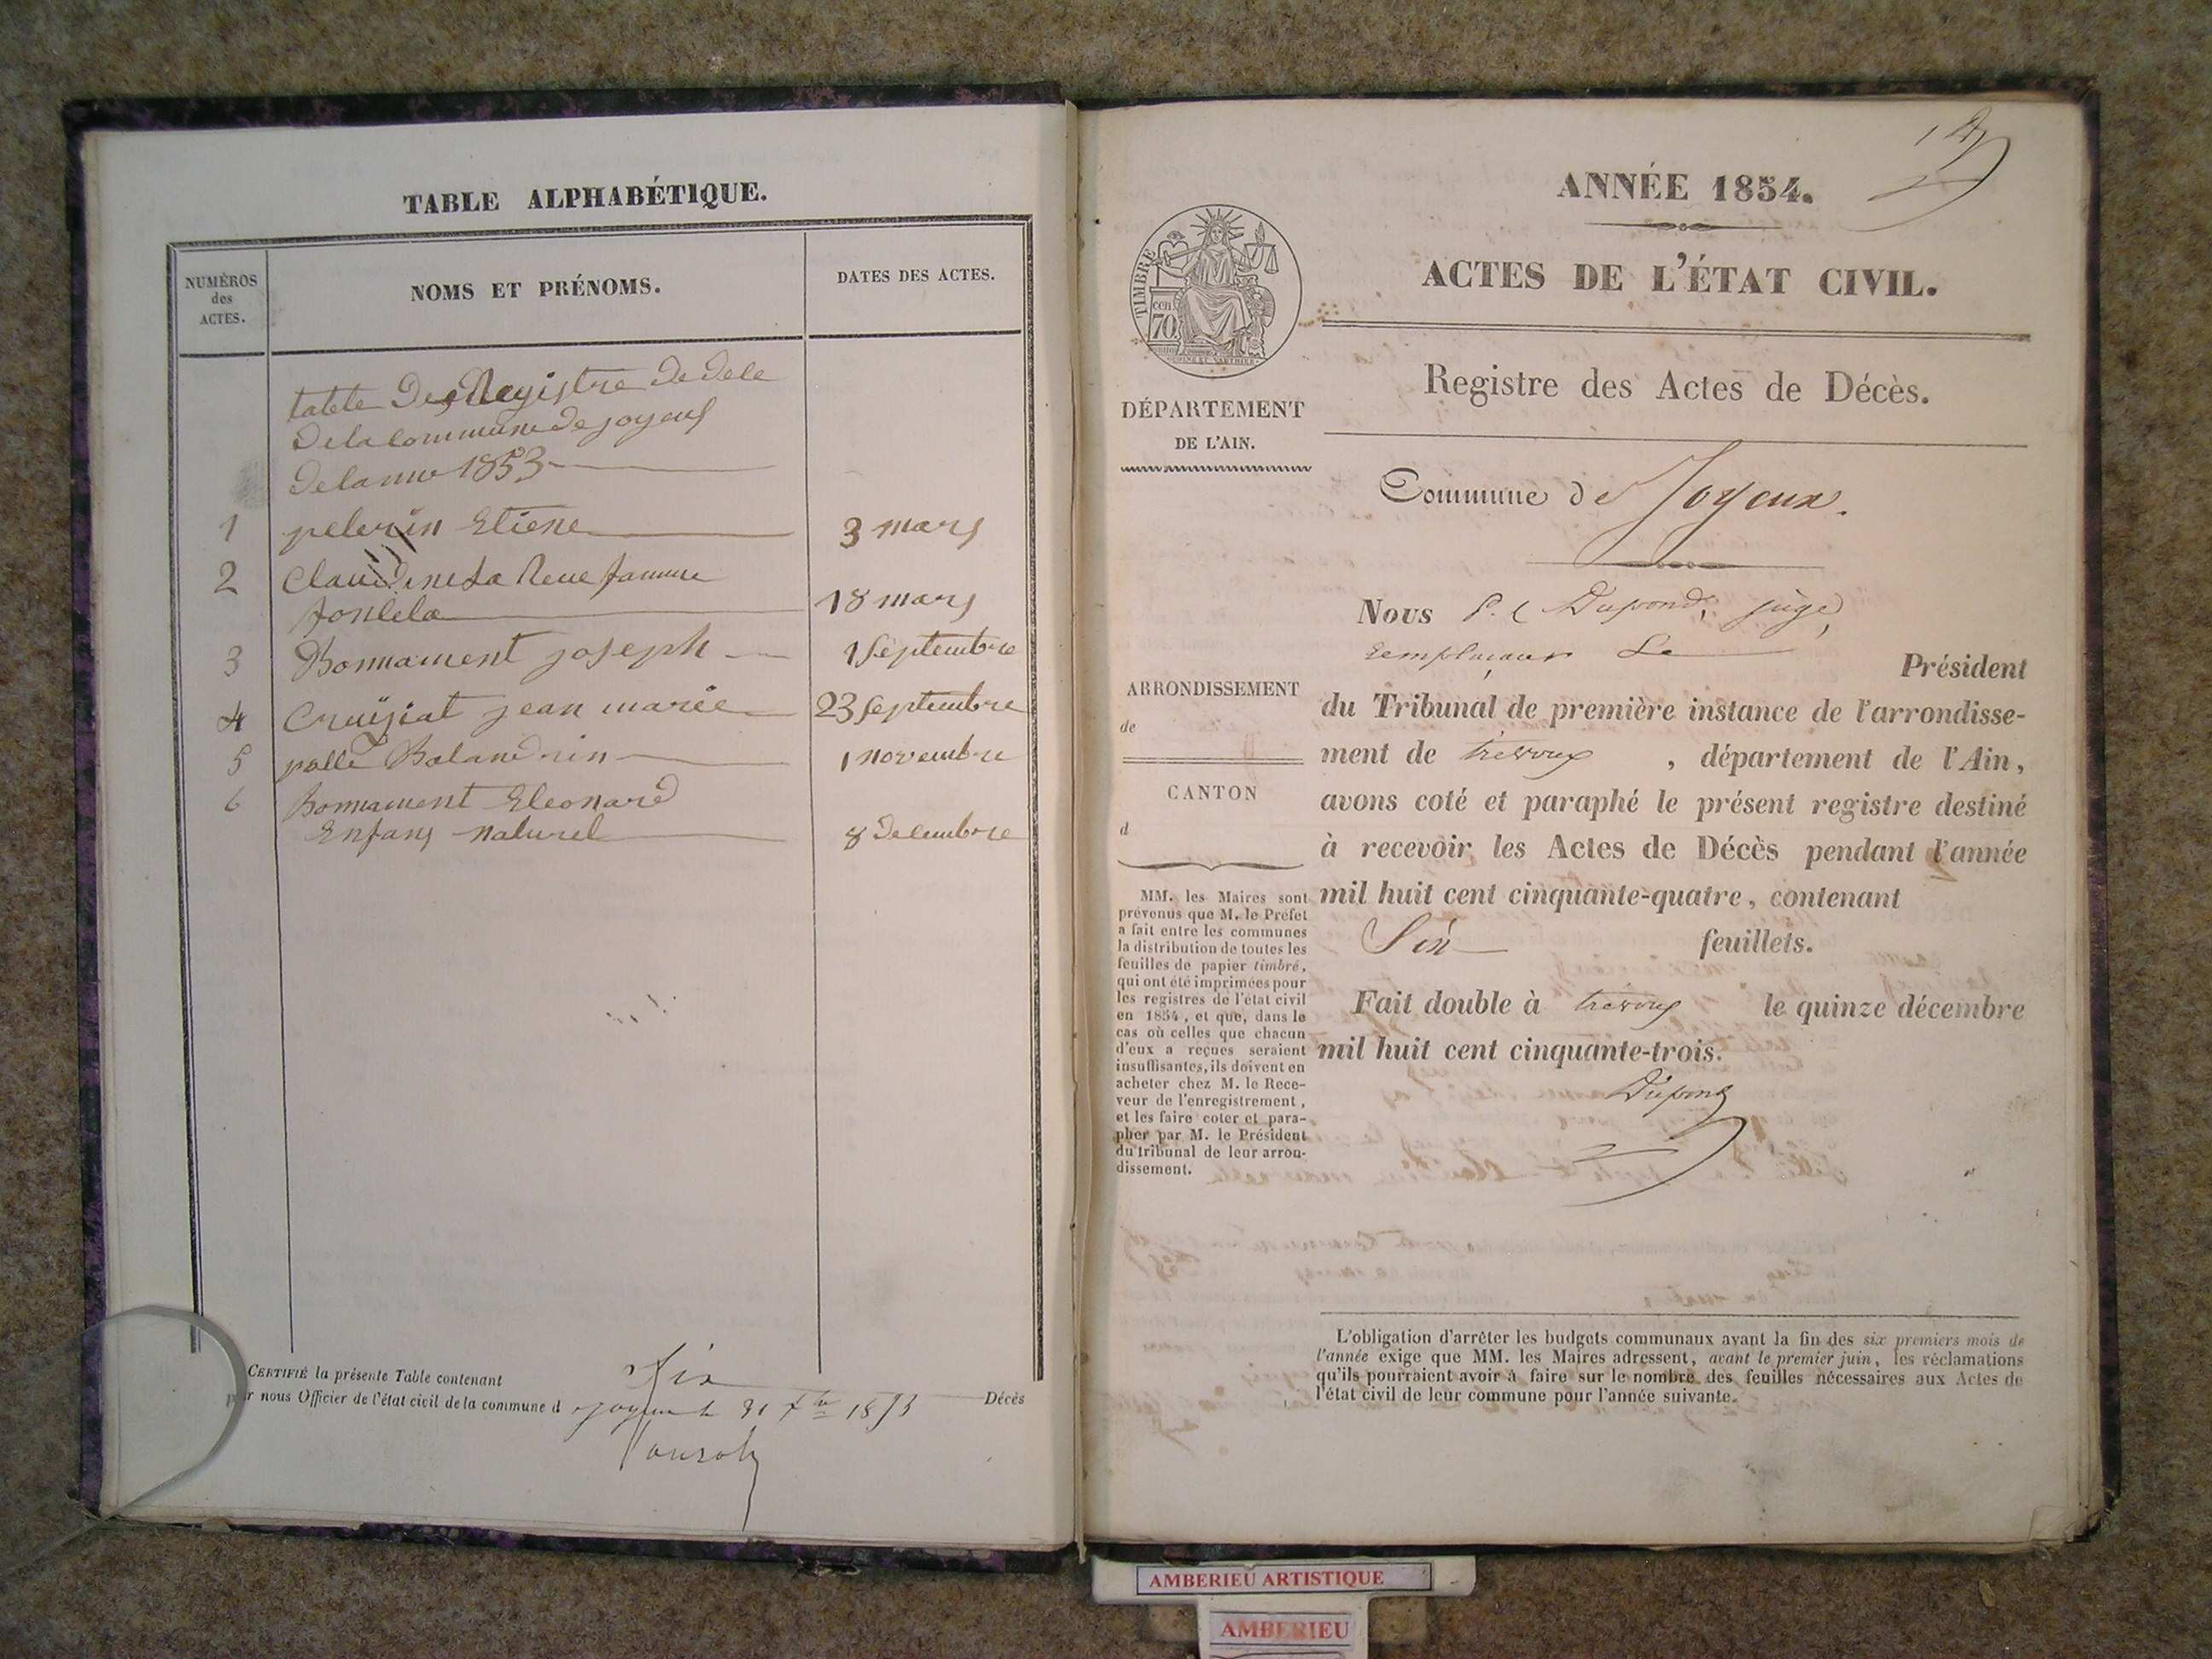 TABLE ALPHABÉTIQUE.
NUMÉROS
des
ACTES.
NOMS ET PRÉNOMS.
DATES DES ACTES.
table Des Registre de dece
De la commune de joyeux
de lanne 1853
1 pelerin Etiene 3 mars
2 Claudine La Reue famme
fontela 18 mars
3 Bonnament joseph 1 Septembre
4 Cruiziat jean marie 23 Septembre
5 pollé Balandrin 1 novembre
6 Bonnament Eleonard
Enfans naturel 8 decembre
CERTIFIÉ la présente Table contenant Six Décès
par nous Officier de l'état civil de la commune d joyeux le 31 Xbre 1853
ANNÉE 1854.
ACTES DE L'ÉTAT CIVIL.
TIMBRE
cen
70
Registre des Actes de Décès.
DÉPARTEMENT
DE L'AIN.
Commune de Joyeux.
Nous Dupond, juge,
remplaçant Le Président
du Tribunal de première instance de l'arrondisse-
ment de trevoux , département de l'Ain,
avons coté et paraphé le présent registre destiné
à recevoir les Actes de Décès pendant l'année
mil huit cent cinquante-quatre, contenant
Six feuillets.
Fait double à trevoux le quinze décembre
mil huit cent cinquante-trois.
Dupond
ARRONDISSEMENT
de
CANTON
d
MM. les Maires sont
prévenus que M. le Préfet
a fait entre les communes
la distribution de toutes les
feuilles de papier timbré,
qui ont été imprimées pour
les registres de l'état civil
en 1854, et que, dans le
cas où celles que chacun
d'eux a reçues seraient
insuffisantes, ils doivent en
acheter chez M. le Rece-
veur de l'enregistrement,
et les faire coter et para-
pher par M. le Président
du tribunal de leur arron-
dissement.
L'obligation d'arrêter les budgets communaux avant la fin des six premiers mois de
l'année exige que MM. les Maires adressent, avant le premier juin, les réclamations
qu'ils pourraient avoir à faire sur le nombre des feuilles nécessaires aux Actes de
l'état civil de leur commune pour l'année suivante.
AMBERIEU ARTISTIQUE
AMBERIEU